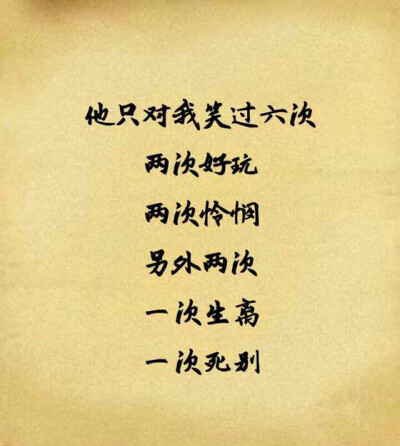 他只对我笑过六次
两次好玩
两次怜悯
另外两次
一次生离
一次死别